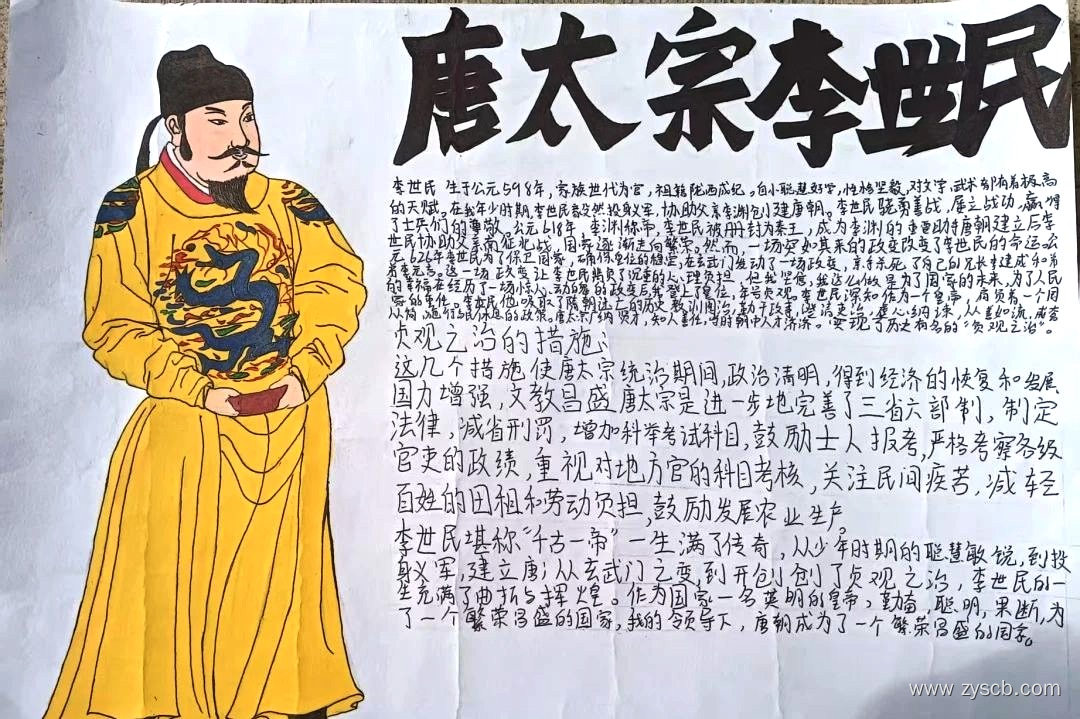 唐太宗李世民
李世民 生于公元598年，家族世代为官，祖籍陇西成纪。自小聪慧好学，性格坚毅，对文学，武术都有着极高
的天赋。在我年少时期，李世民毅然投身义军，协助父亲李渊创建唐朝。李世民骁勇善战，屡立战功，赢得
了士兵们的尊敬。公元618年，李渊称帝，李世民被册封为秦王，成为李渊的重要助手唐朝建立后李
世民协助父亲南征北战，国家逐渐走向繁荣。然而，一场突如其来的政变改变了李世民的命运公
元626年李世民为了保卫国家，确保皇位的稳定，在玄武门发动了一场政变，亲手杀死了自己的兄长李建成和弟
弟李元吉。这一场政变让李世民背负了沉重的心理负担，但我坚信，我这么做是为了国家的未来，为了人民
的幸福在经历了一场惊人动的政变后我登上了皇位，年号贞观。李世民深知作为一个皇帝，肩负着一个国
家的重任。李世民他吸取了隋朝灭亡的历史教训，勤于政事，虚心纳谏，从善如流，戒奢
从简，施行与民休息的政策。唐太宗广纳贤才，知人善任，当时朝中人才济济。实现了历史有名的“贞观之治”。
贞观之治的措施：
这几个措施使唐太宗统治期间，政治清明，得到经济的恢复和发展
国力增强，文教昌盛唐太宗是进一步地完善了三省六部制，制定
法律，减省刑罚，增加科举考试科目，鼓励士人报考，严格考察各级
官吏的政绩，重视对地方官的科目考核，关注民间疾苦，减轻
百姓的田租和劳动负担，鼓励发展农业生产。
李世民堪称“千古一帝”一生满了传奇，从少年时期的聪慧敏锐，到投
身义军，建立唐；从玄武门之变，到开创创了贞观之治，李世民的一
生充满了曲折与辉煌。作为国家一名英明的皇帝，勤奋，聪明，果断，为
了一个繁荣昌盛的国家，我的领导下，唐朝成为了一个繁荣昌盛的国家。
www.zyscb.com